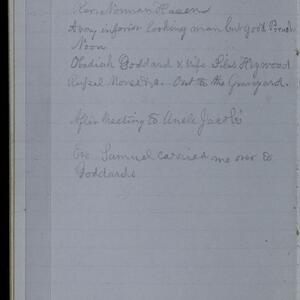 Rev. Norman Hazen
A very inferior looking man but good Preach
Noon
Obadiah Goddard & wife Silas Heywood
Out to the Graveyard.
After Meeting to Uncle Jacobs
Eve Samuel carried me over to
Goddards